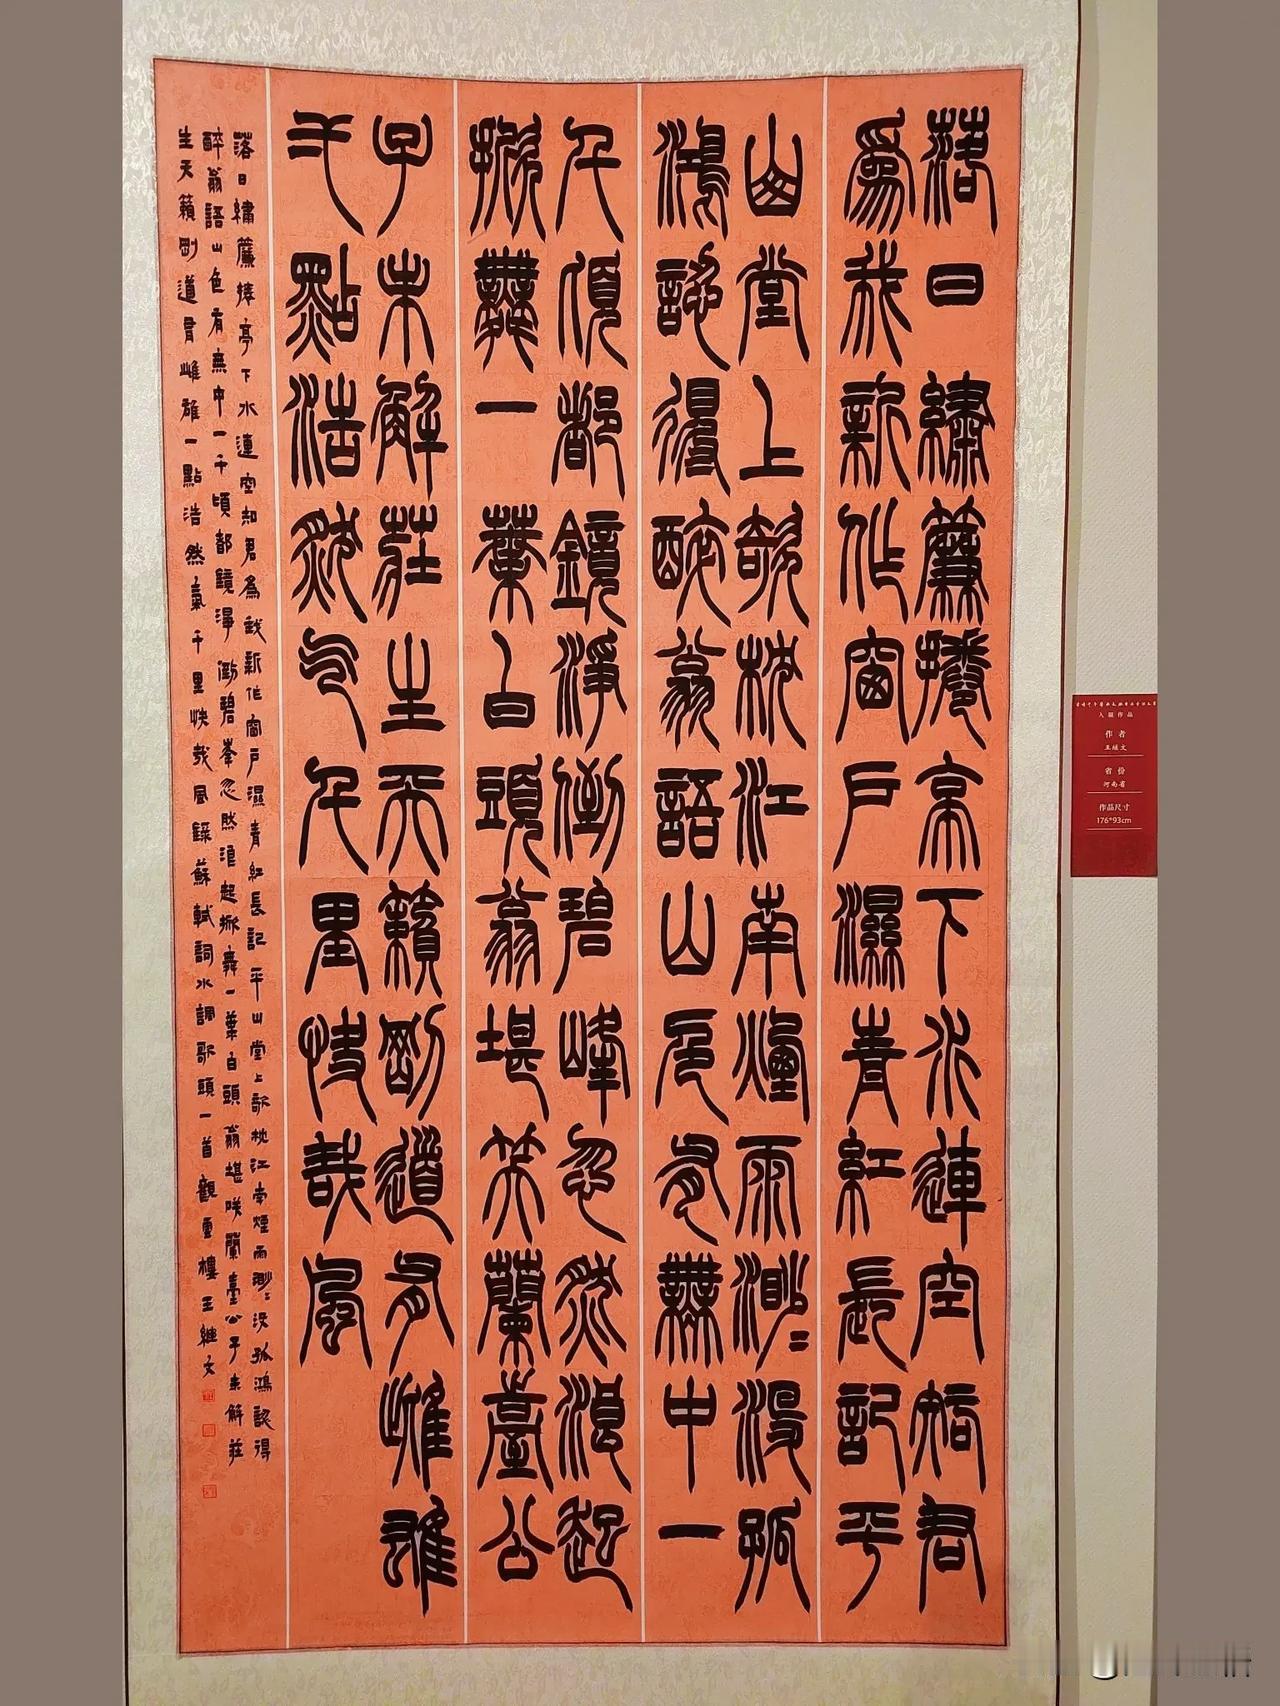 落日繡簾捲亭下水連空知君
爲我新作窗戶濕青紅長記平
山堂上欹枕江南煙雨渺〻沒孤
鴻認得醉翁語山色有無中一
千頃都鏡淨倒碧峰忽然浪起
掀舞一葉白頭翁堪笑蘭臺公
子未解莊生天籟剛道有雌雄
弌點浩然氣千里快哉風
落日繡簾捲亭下水連空知君為我新作窗戶濕青紅長記平山堂上欹枕江南煙雨渺〻沒孤鴻認得
醉翁語山色有無中一千頃都鏡淨倒碧峯忽然浪起掀舞一葉白頭翁堪咲蘭臺公子未解莊
生天籟剛道有雌雄一點浩然氣千里快哉風錄蘇軾詞水調歌頭一首觀雲樓王繼文
入展作品
作者
王继文
省份
河南省
作品尺寸
176*93cm